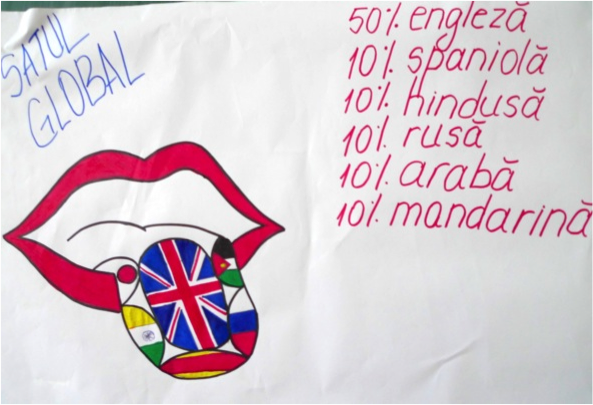 SATUL
GLOBAL
50% engleză
10% spaniolă
10% hindusă
10% rusă
10% arabă
10% mandarină